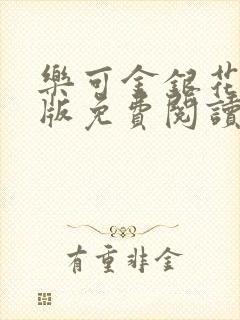 樂可金銀花
版免費閱讀
有重非金